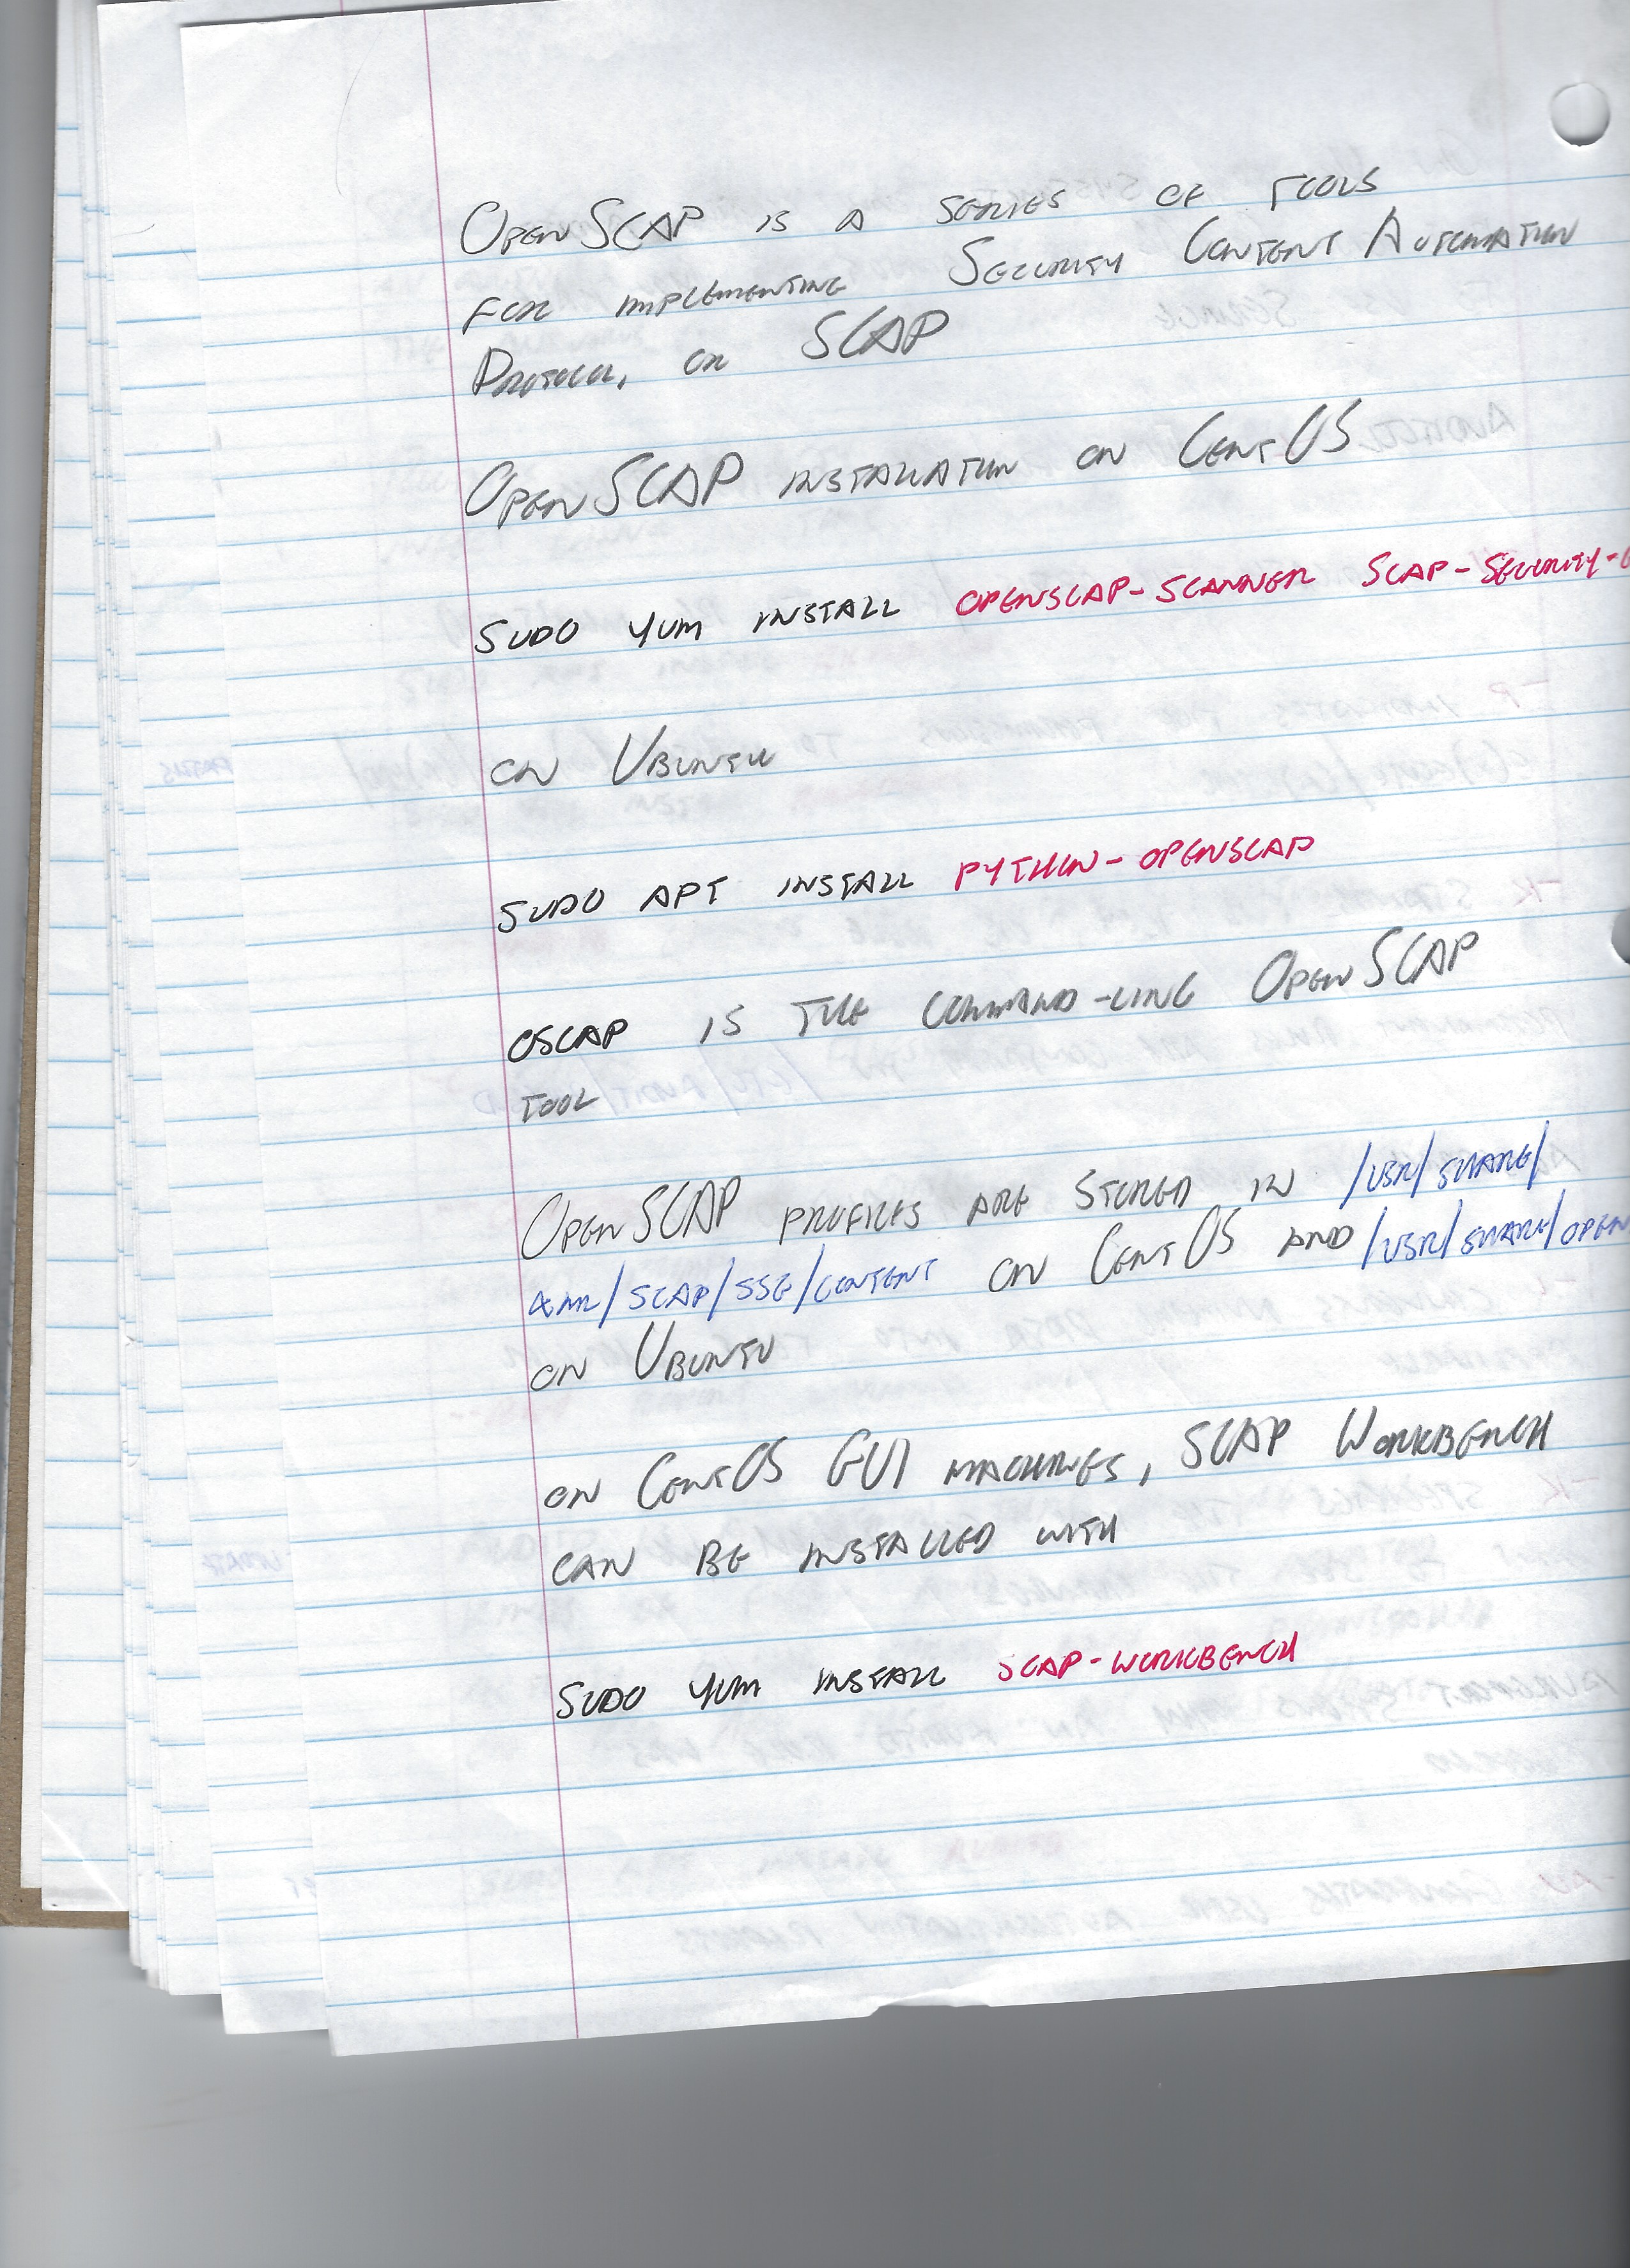 OpenSCAP is a series of tools
for implementing Security Content Automation
Protocol, or SCAP
OpenSCAP installation on CentOS
SUDO YUM INSTALL OPENSCAP-SCANNER SCAP-SECURITY-
on Ubuntu
SUDO APT INSTALL PYTHON-OPENSCAP
OSCAP is the command-line OpenSCAP
tool
OpenSCAP profiles are stored in /usr/share/
xml/scap/ssg/content on CentOS and /usr/share/open
on Ubuntu
on CentOS GUI machines, SCAP Workbench
can be installed with
SUDO YUM INSTALL SCAP-WORKBENCH